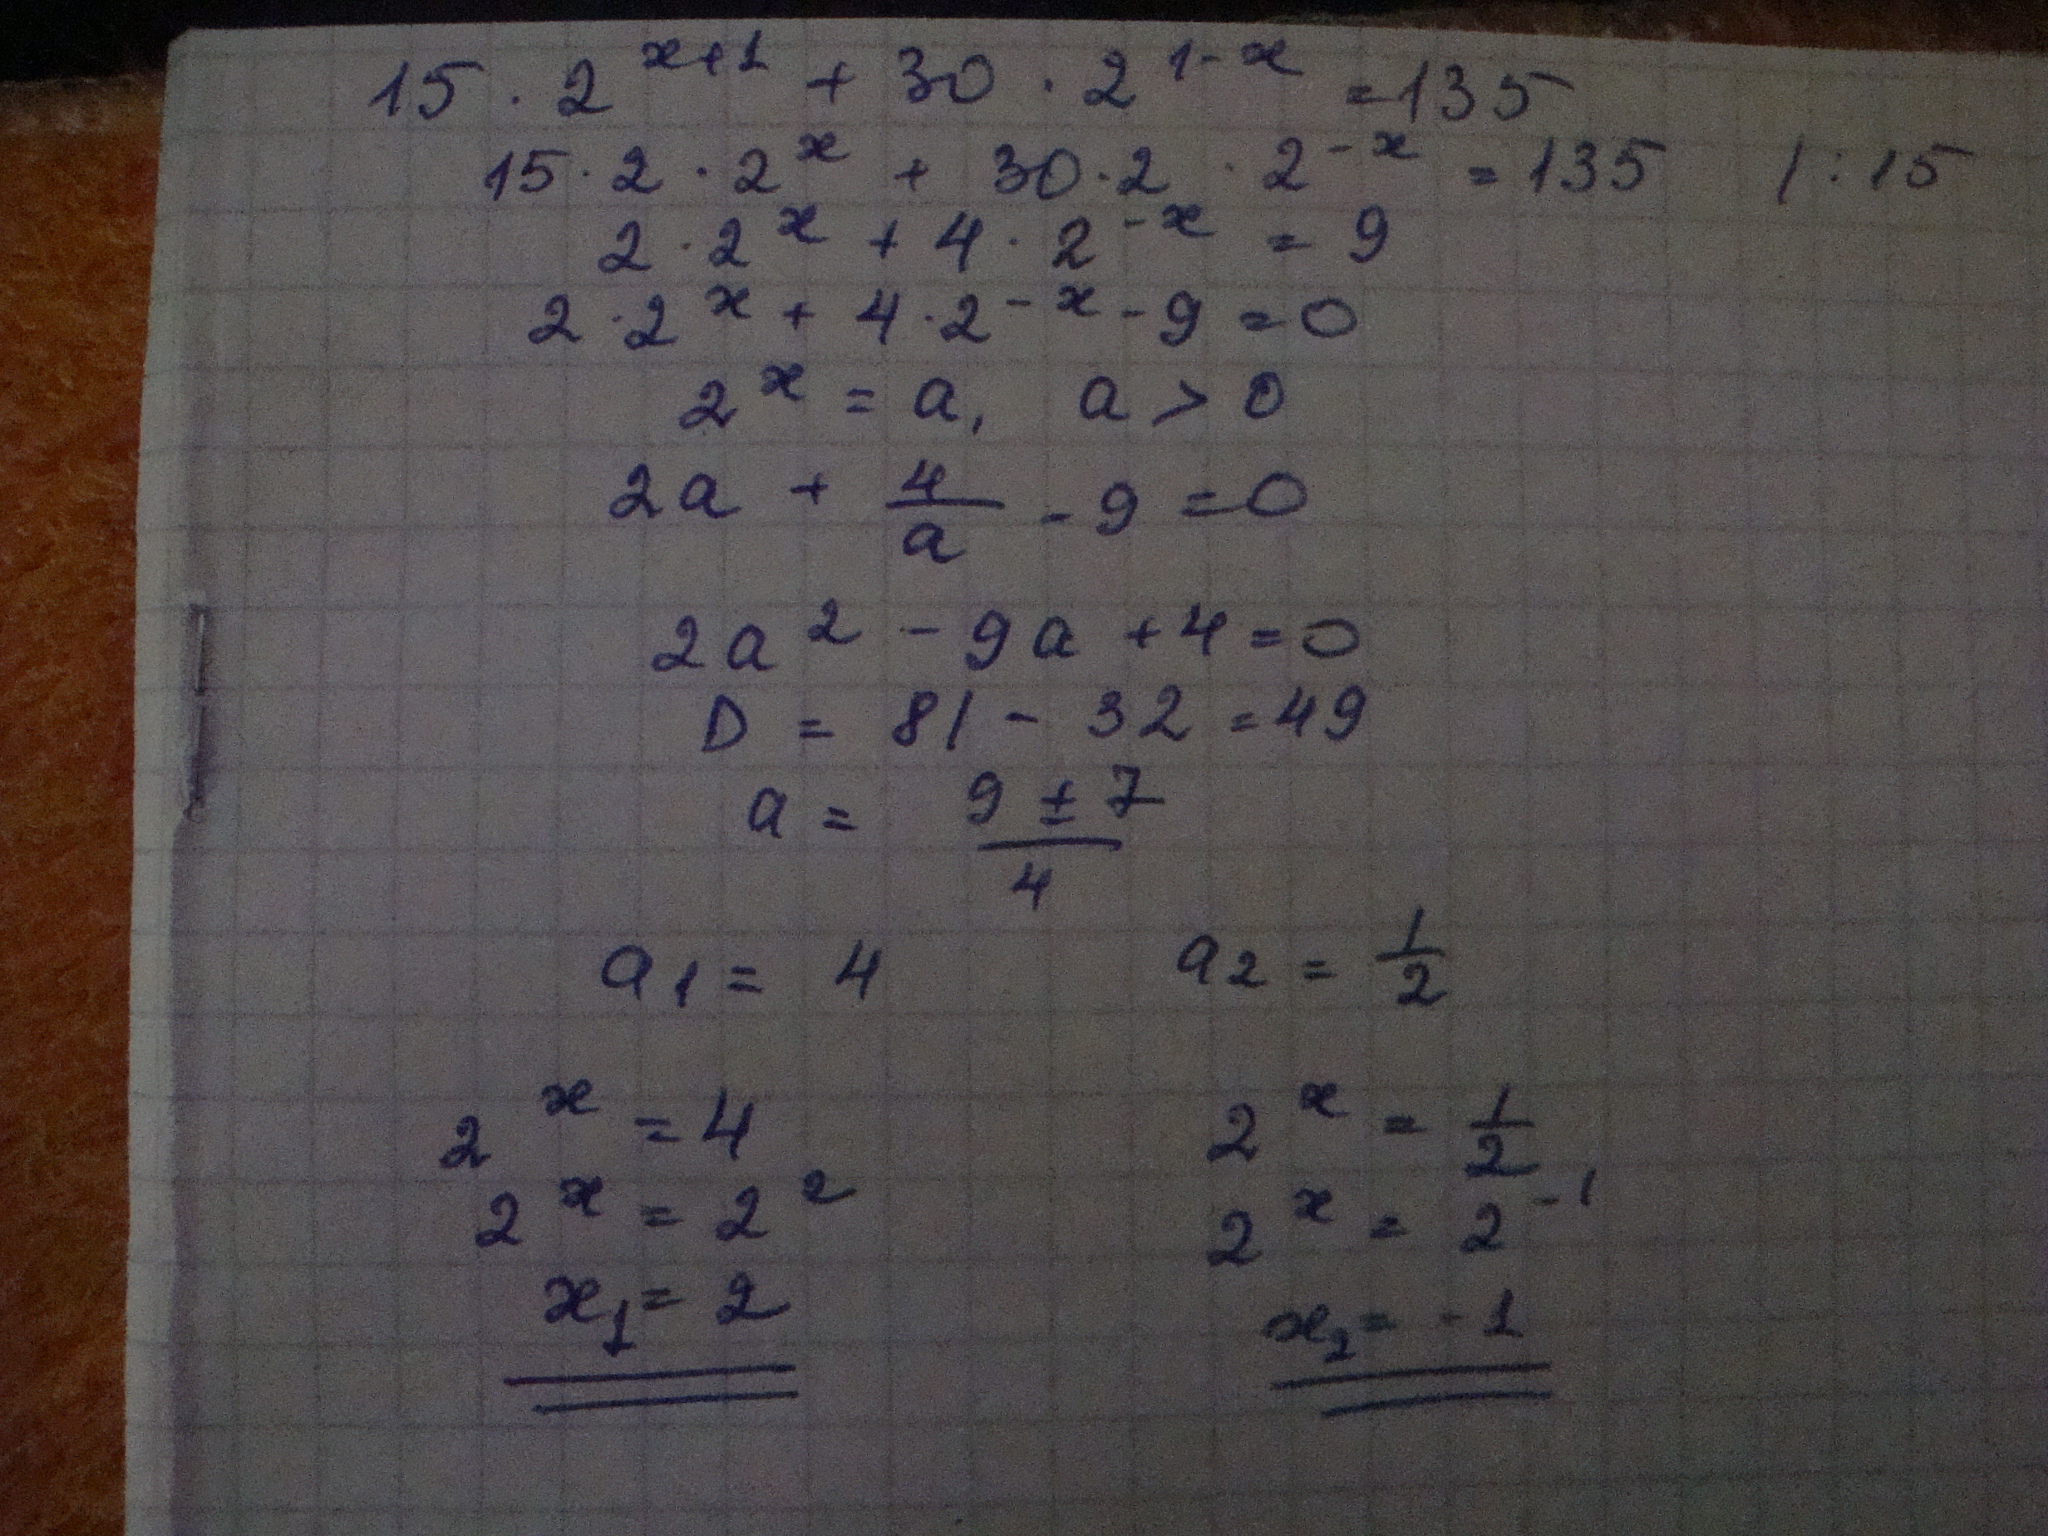 15 · 2^(x+1) + 30 · 2^(1-x) = 135
15 · 2 · 2^x + 30 · 2 · 2^(-x) = 135 | : 15
2 · 2^x + 4 · 2^(-x) = 9
2 · 2^x + 4 · 2^(-x) - 9 = 0
2^x = a, a > 0
2a + 4/a - 9 = 0
2a^2 - 9a + 4 = 0
D = 81 - 32 = 49
a = (9 ± 7)/4
a₁ = 4 a₂ = 1/2
2^x = 4 2^x = 1/2
2^x = 2^2 2^x = 2^(-1)
x₁ = 2 x₂ = -1